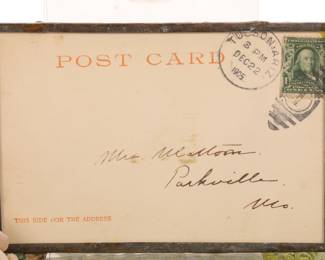 POST CARD
TUCSON ARIZ
3 PM
DEC 22
1905
Mrs
Parkville.
Mo.
THIS SIDE FOR THE ADDRESS